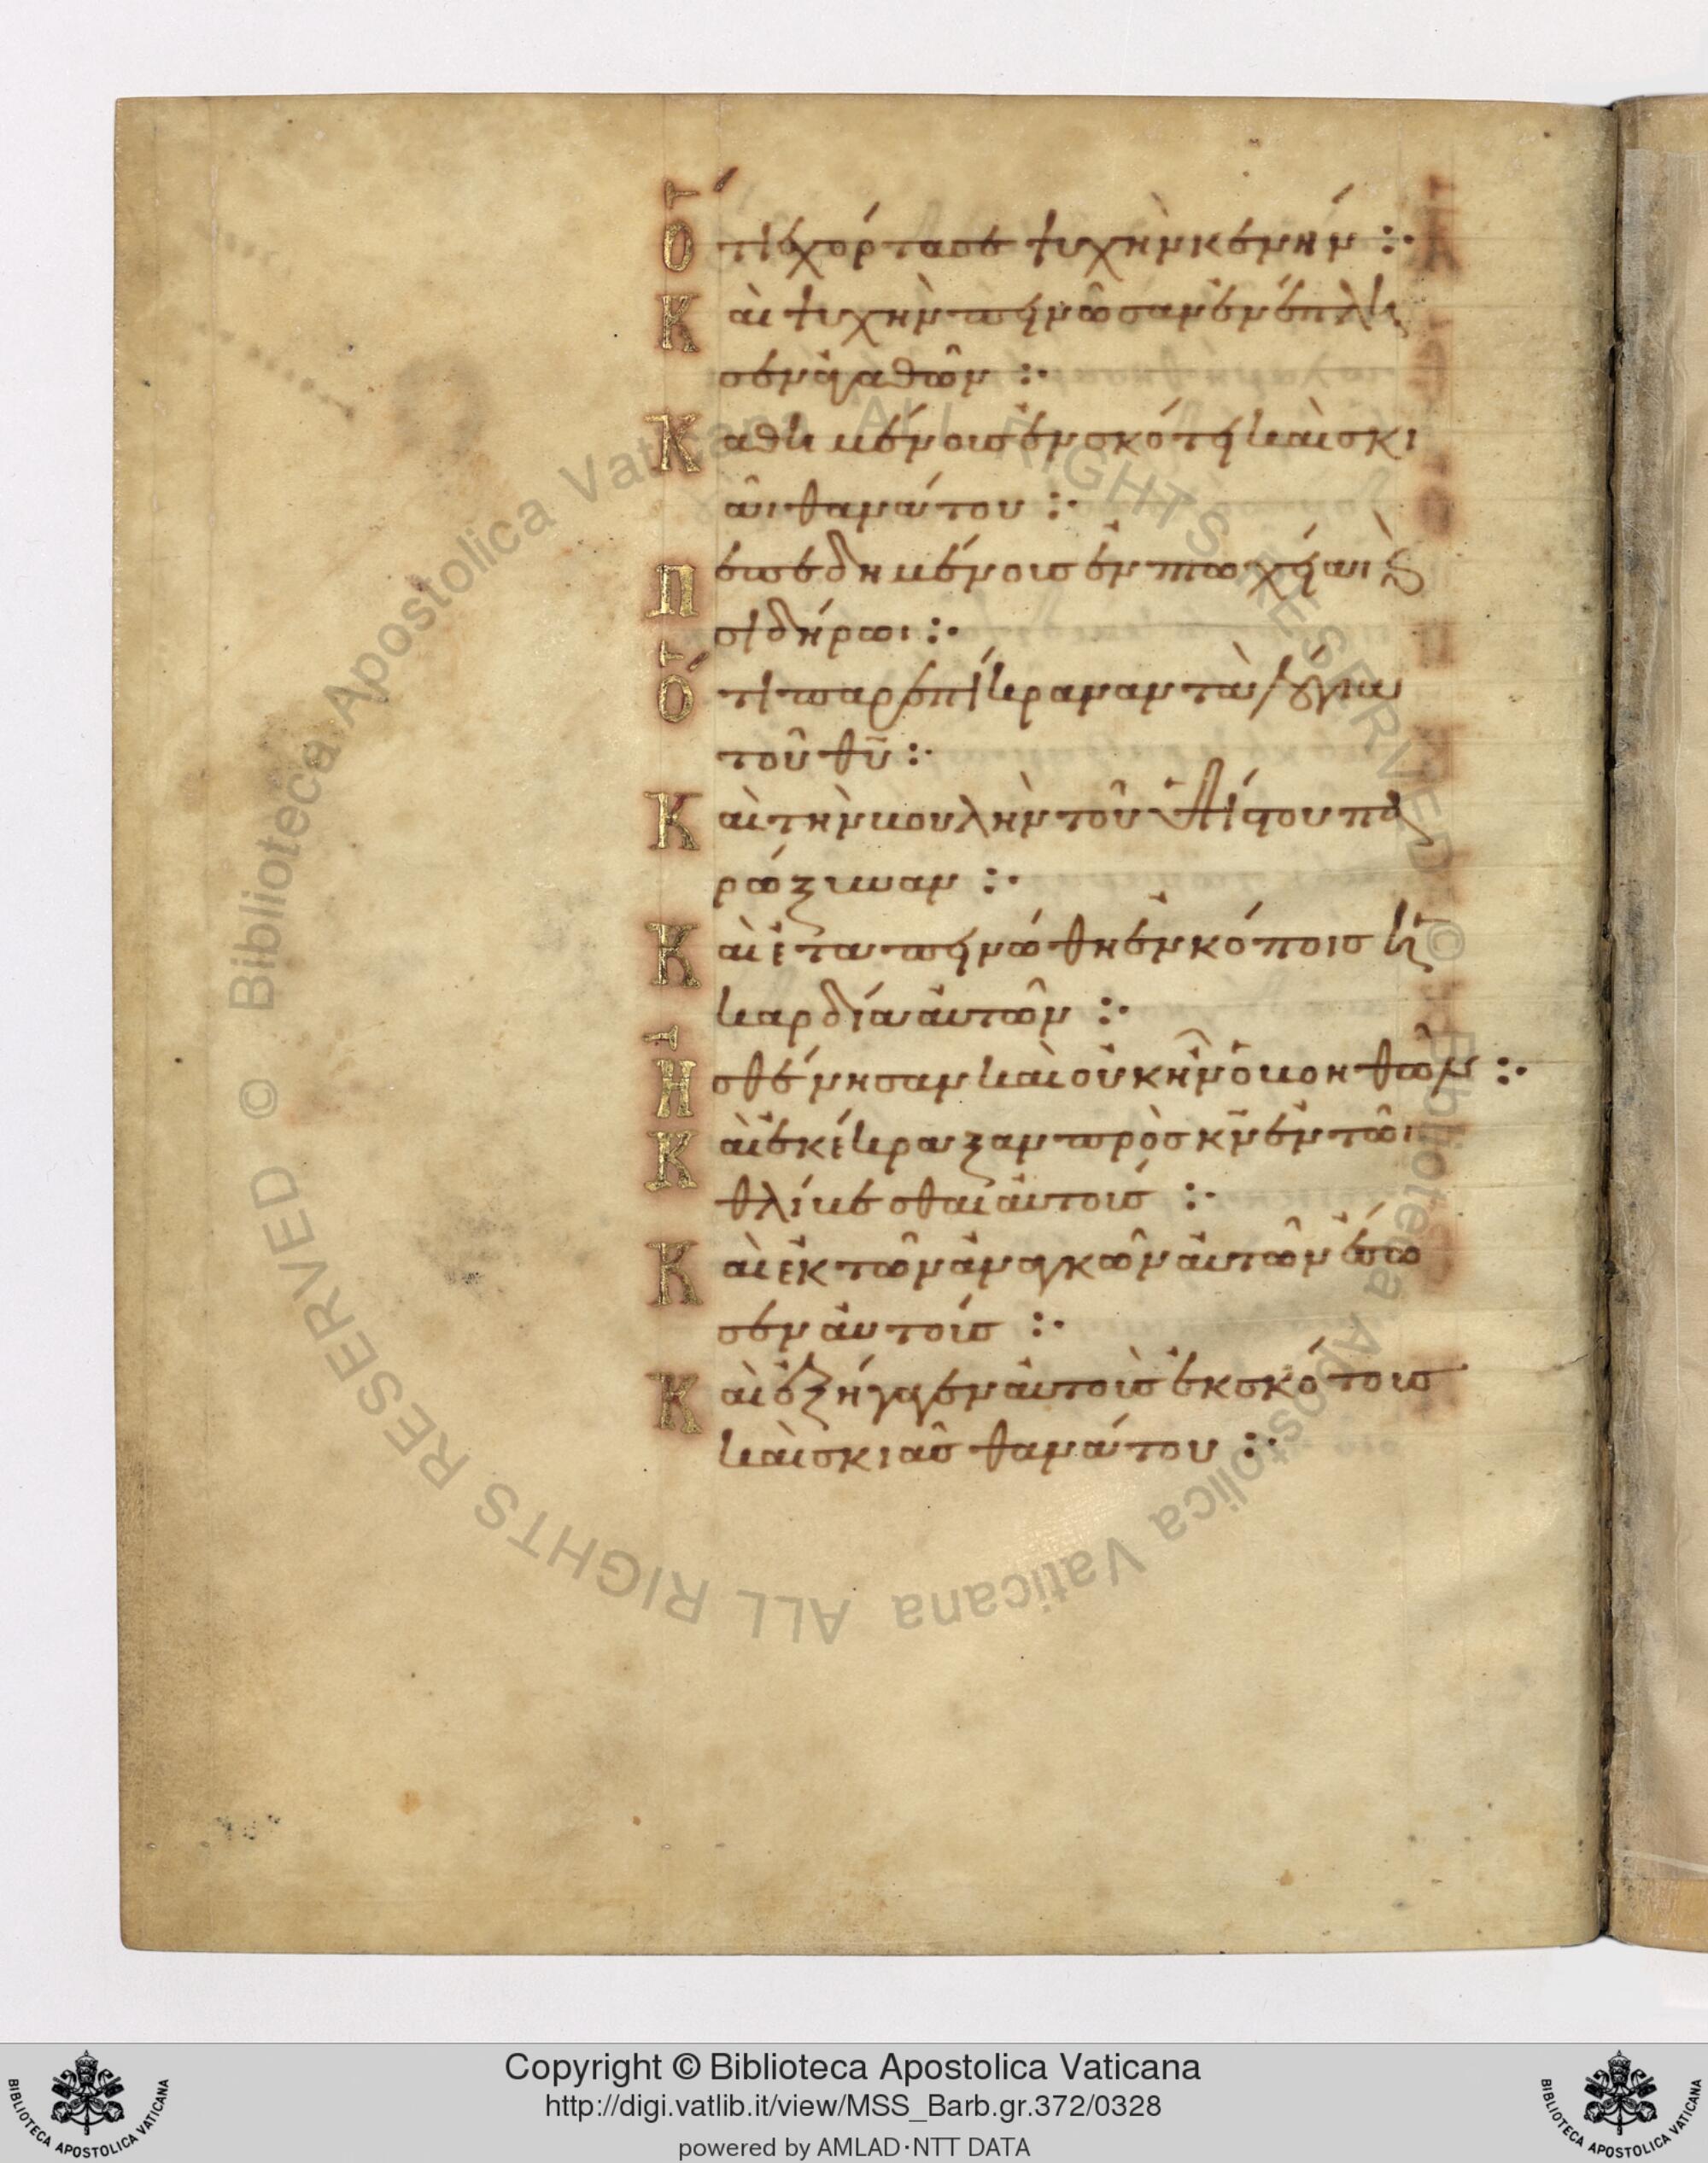 Ὅτι ἐχόρτασε ψυχὴν κενήν :·
Καὶ ψυχὴν πεινῶσαν ἐνέπλη
σεν ἀγαθῶν :·
Καθημένοις ἐν σκότει καὶ σκι
ᾶι θανάτου :·
Πεπεδημένοις ἐν πτωχείαι ϗ
σιδήρωι :·
Ὅτι παρεπίκραναν τὰ λόγια
τοῦ θ̅υ̅ :·
Καὶ τὴν βουλὴν τοῦ ὑψίστου πα
ρώξυναν :·
Καὶ ἐταπεινώθη ἐν κόποις ἡ
καρδία αὐτῶν :·
Ἠσθένησαν καὶ οὐκ ἦν ὁ βοηθῶν :·
Καὶ ἐκέκραξαν πρὸς κ̅ν̅ ἐν τῶι
θλίβεσθαι αὐτούς :·
Καὶ ἐκ τῶν ἀναγκῶν αὐτῶν ἔσω
σεν αὐτούς :·
Καὶ ἐξήγαγεν αὐτοὺς ἐκ σκότους
καὶ σκιᾶς θανάτου :·
© Biblioteca Apostolica Vaticana ALL RIGHTS RESERVED © Biblioteca Apostolica Vaticana ALL RIGHTS RESERVED
Copyright © Biblioteca Apostolica Vaticana
http://digi.vatlib.it/view/MSS_Barb.gr.372/0328
powered by AMLAD·NTT DATA
BIBLIOTECA APOSTOLICA VATICANA
BIBLIOTECA APOSTOLICA VATICANA